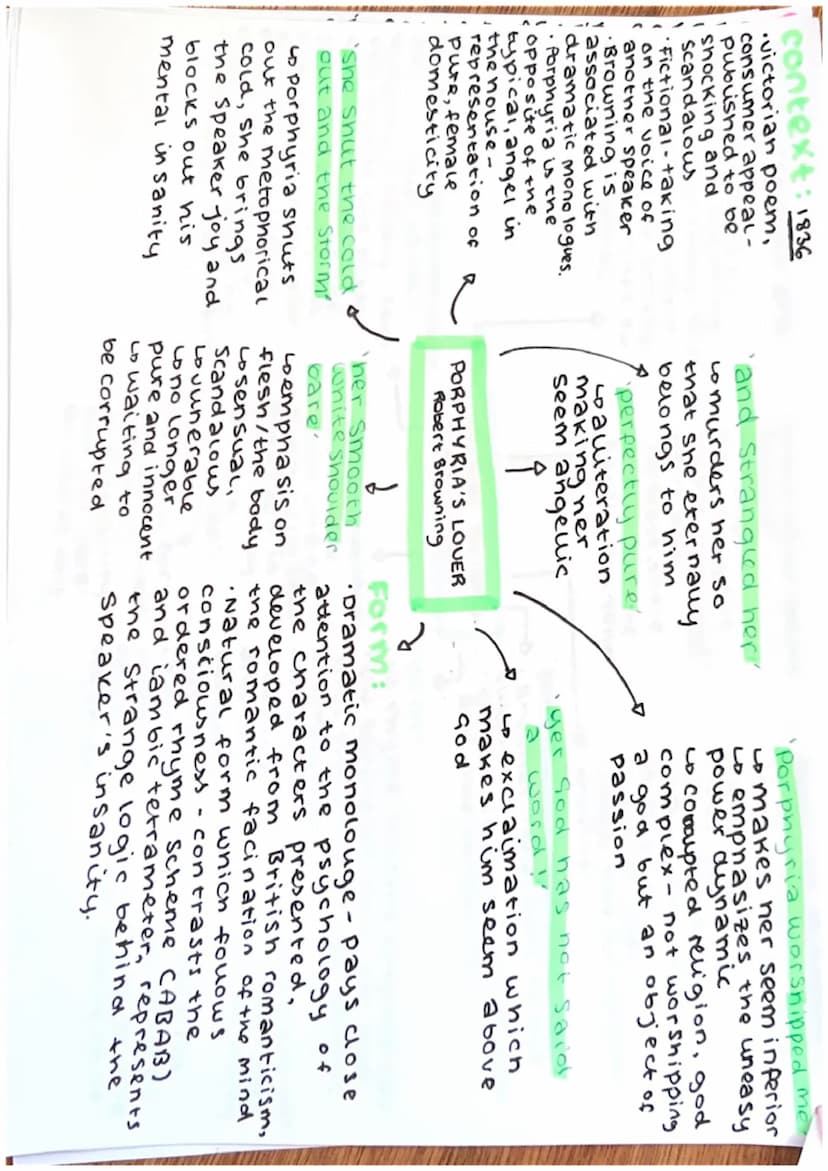 context: 1836
·Victorian poem,
consumer appeal-
published to be
shocking and
scandalous
·Fictional-taking
on the voice of
another speaker
·Browning is
associated with
dramatic monologues.
·Porphyria is the
opposite of the
typical, angel in
the house-
representation of
pure, female
domesticity
'she shut the cold
out and the storm'
↳ porphyria shuts
out the metaphorical
cold, she brings
the speaker joy and
blocks out his
mental insanity
PORPHYRIA'S LOVER
Robert Browning
'and strangled her'
↳ murders her so
that she eternally
belongs to him
'perfectly pure'
↳ alliteration
making her
seem angelic
'her smooth
white shoulder
bare'
↳ emphasis on
flesh/the body
↳ sensual,
scandalous
↳ vunerable
↳ no longer
pure and innocent
↳ waiting to
be corrupted
'porphyria worshipped me'
↳ makes her seem inferior
↳ emphasizes the uneasy
power dynamic
↳ corrupted religion, god
complex- not worshipping
a god but an object of
passion
'yet God has not said
a word!'
↳ exclaimation which
makes him seem above
God
Form:
·Dramatic monolouge- pays close
attention to the psychology of
the characters presented,
developed from British romanticism,
the romantic facination of the mind
·Natural form which follows
consciousness- contrasts the
ordered rhyme scheme (ABAB)
and iambic tetrameter, represents
the strange logic behind the
speaker's insanity.